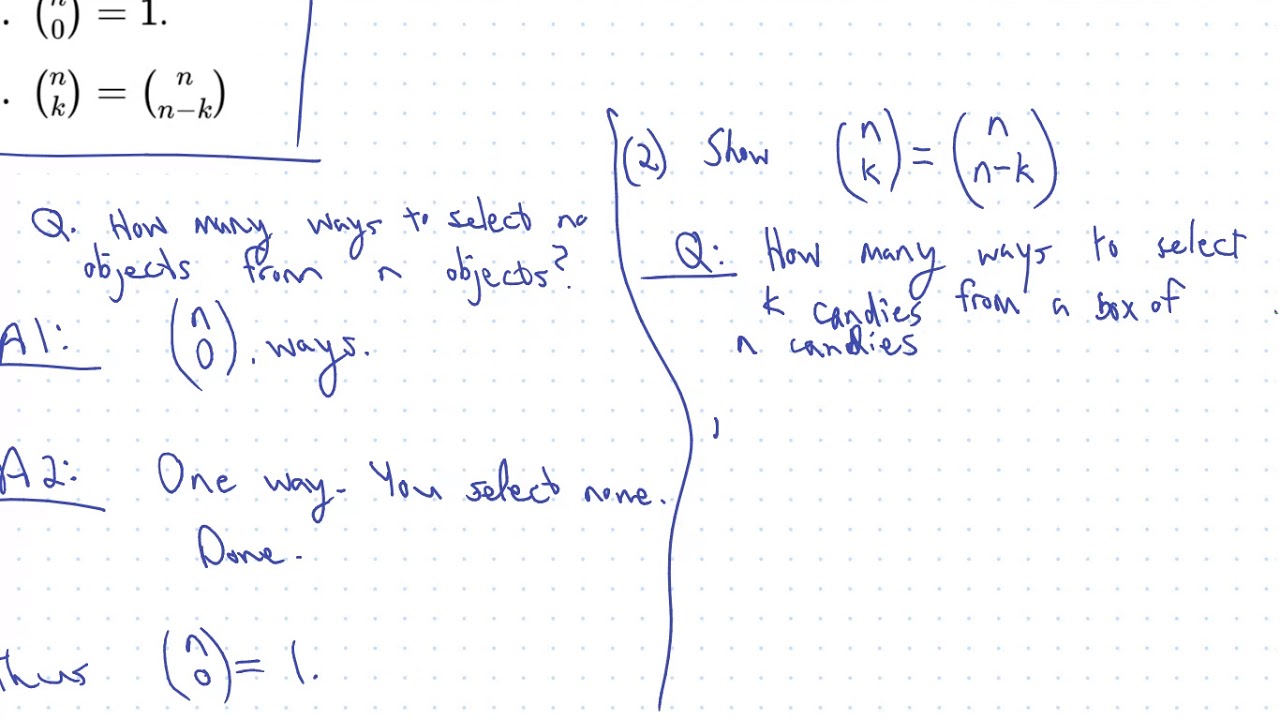 . (n 0) = 1.
. (n k) = (n n−k)
Q. How many ways to select no
objects from n objects?
A1: (n 0) . ways.
A2: One way. You select none.
Done.
thus (n 0) = 1.
(2) Show (n k) = (n n-k)
Q: How many ways to select
k candies from a box of
n candies